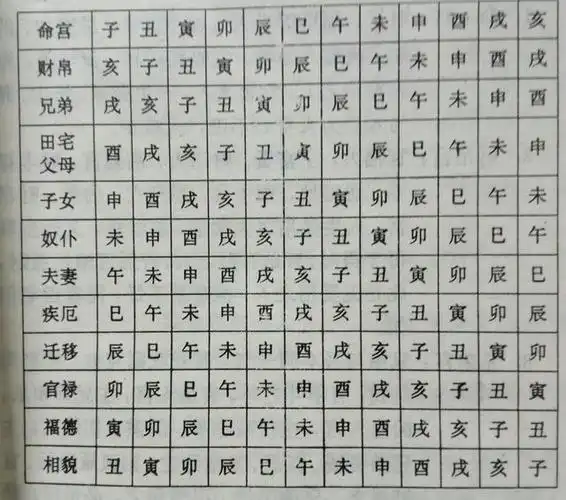 命宫 子 丑 寅 卯 辰 巳 午 未 申 酉 戌 亥
财帛 亥 子 丑 寅 卯 辰 巳 午 未 申 酉 戌
兄弟 戌 亥 子 丑 寅 卯 辰 巳 午 未 申 酉
田宅
父母 酉 戌 亥 子 丑 寅 卯 辰 巳 午 未 申
子女 申 酉 戌 亥 子 丑 寅 卯 辰 巳 午 未
奴仆 未 申 酉 戌 亥 子 丑 寅 卯 辰 巳 午
夫妻 午 未 申 酉 戌 亥 子 丑 寅 卯 辰 巳
疾厄 巳 午 未 申 酉 戌 亥 子 丑 寅 卯 辰
迁移 辰 巳 午 未 申 酉 戌 亥 子 丑 寅 卯
官禄 卯 辰 巳 午 未 申 酉 戌 亥 子 丑 寅
福德 寅 卯 辰 巳 午 未 申 酉 戌 亥 子 丑
相貌 丑 寅 卯 辰 巳 午 未 申 酉 戌 亥 子